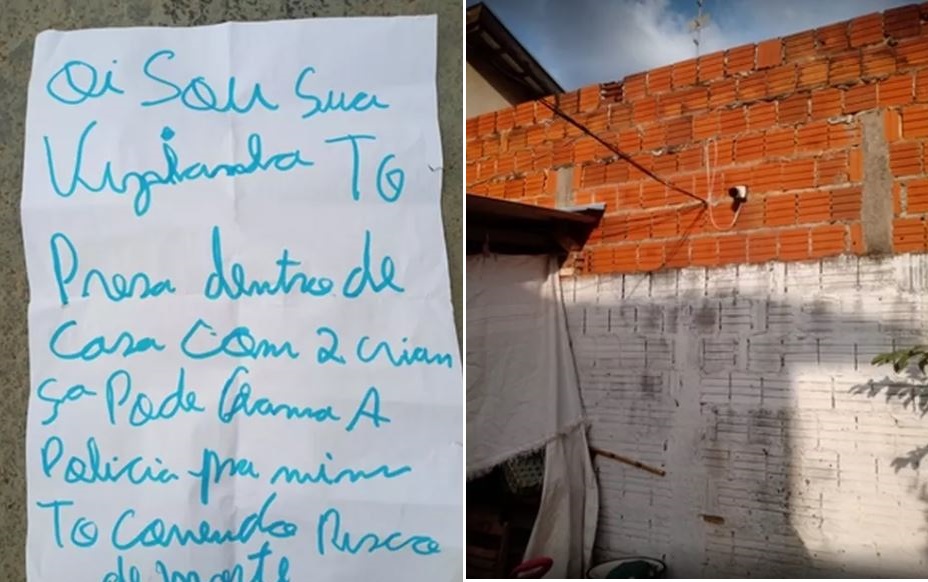 Oi Sou Sua
Viziansha To
Presa dentro de
Casa Com 2 crian
ça Pode Chama A
Policia pra mim
To Correndo Risco
de morte